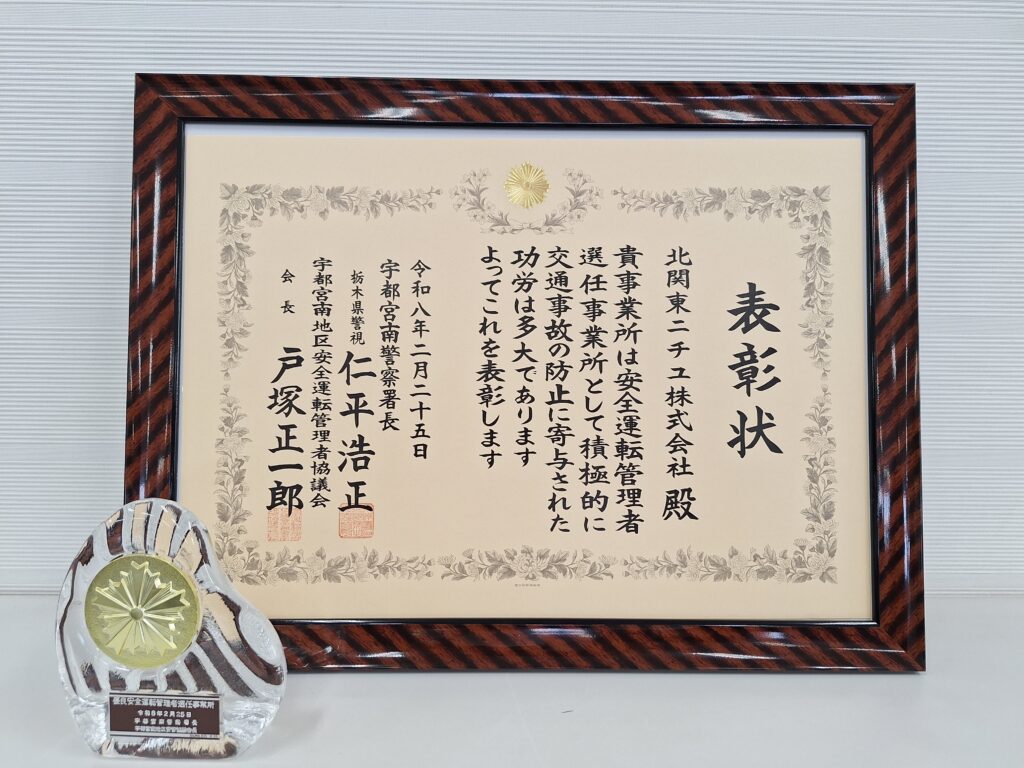 表彰状
北関東ニチユ株式会社 殿
貴事業所は安全運転管理者
選任事業所として積極的に
交通事故の防止に寄与された
功労は多大であります
よってこれを表彰します
令和八年二月二十五日
宇都宮南警察署長
栃木県警視 仁平浩正
宇都宮南地区安全運転管理者協議会
会長 戸塚正一郎
優良安全運転管理者選任事業所
令和8年2月25日
宇都宮南警察署長